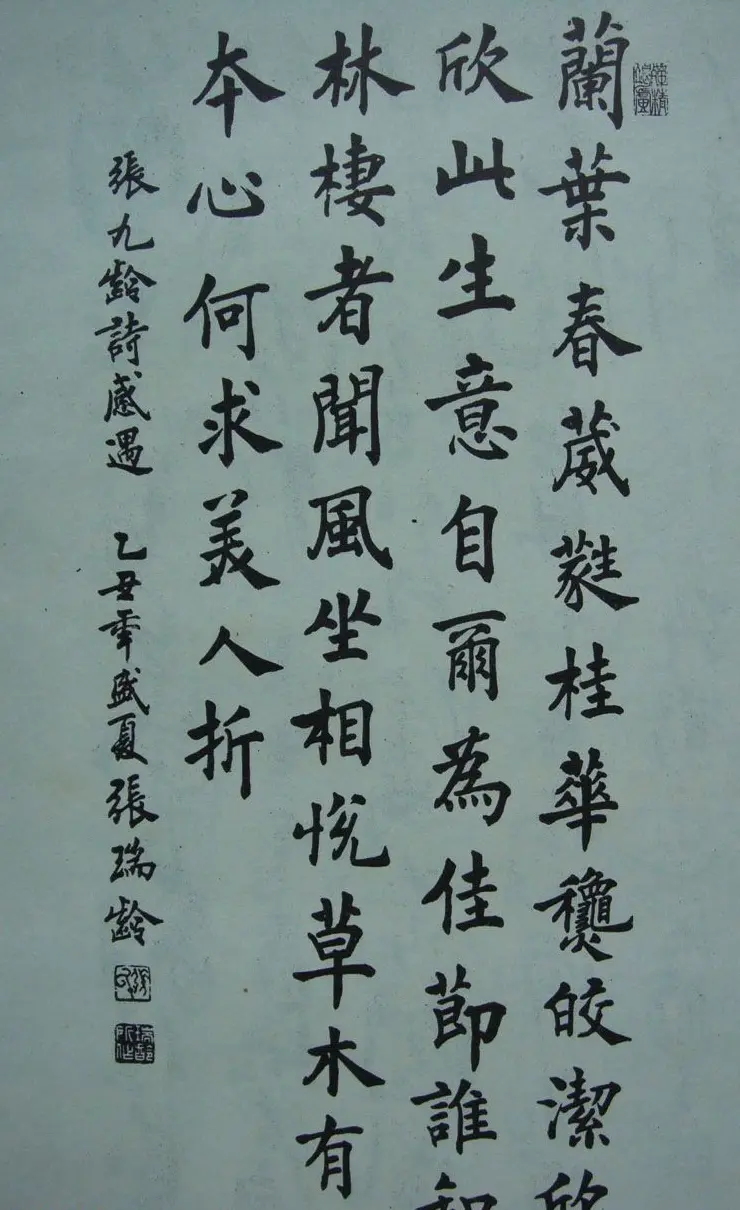 蘭葉春葳蕤桂華龝皎潔欣
欣此生意自爾為佳莭誰知
林棲者聞風坐相悅草木有
夲心何求美人折
張九齡詩感遇 乙丑年盛夏張瑞齡